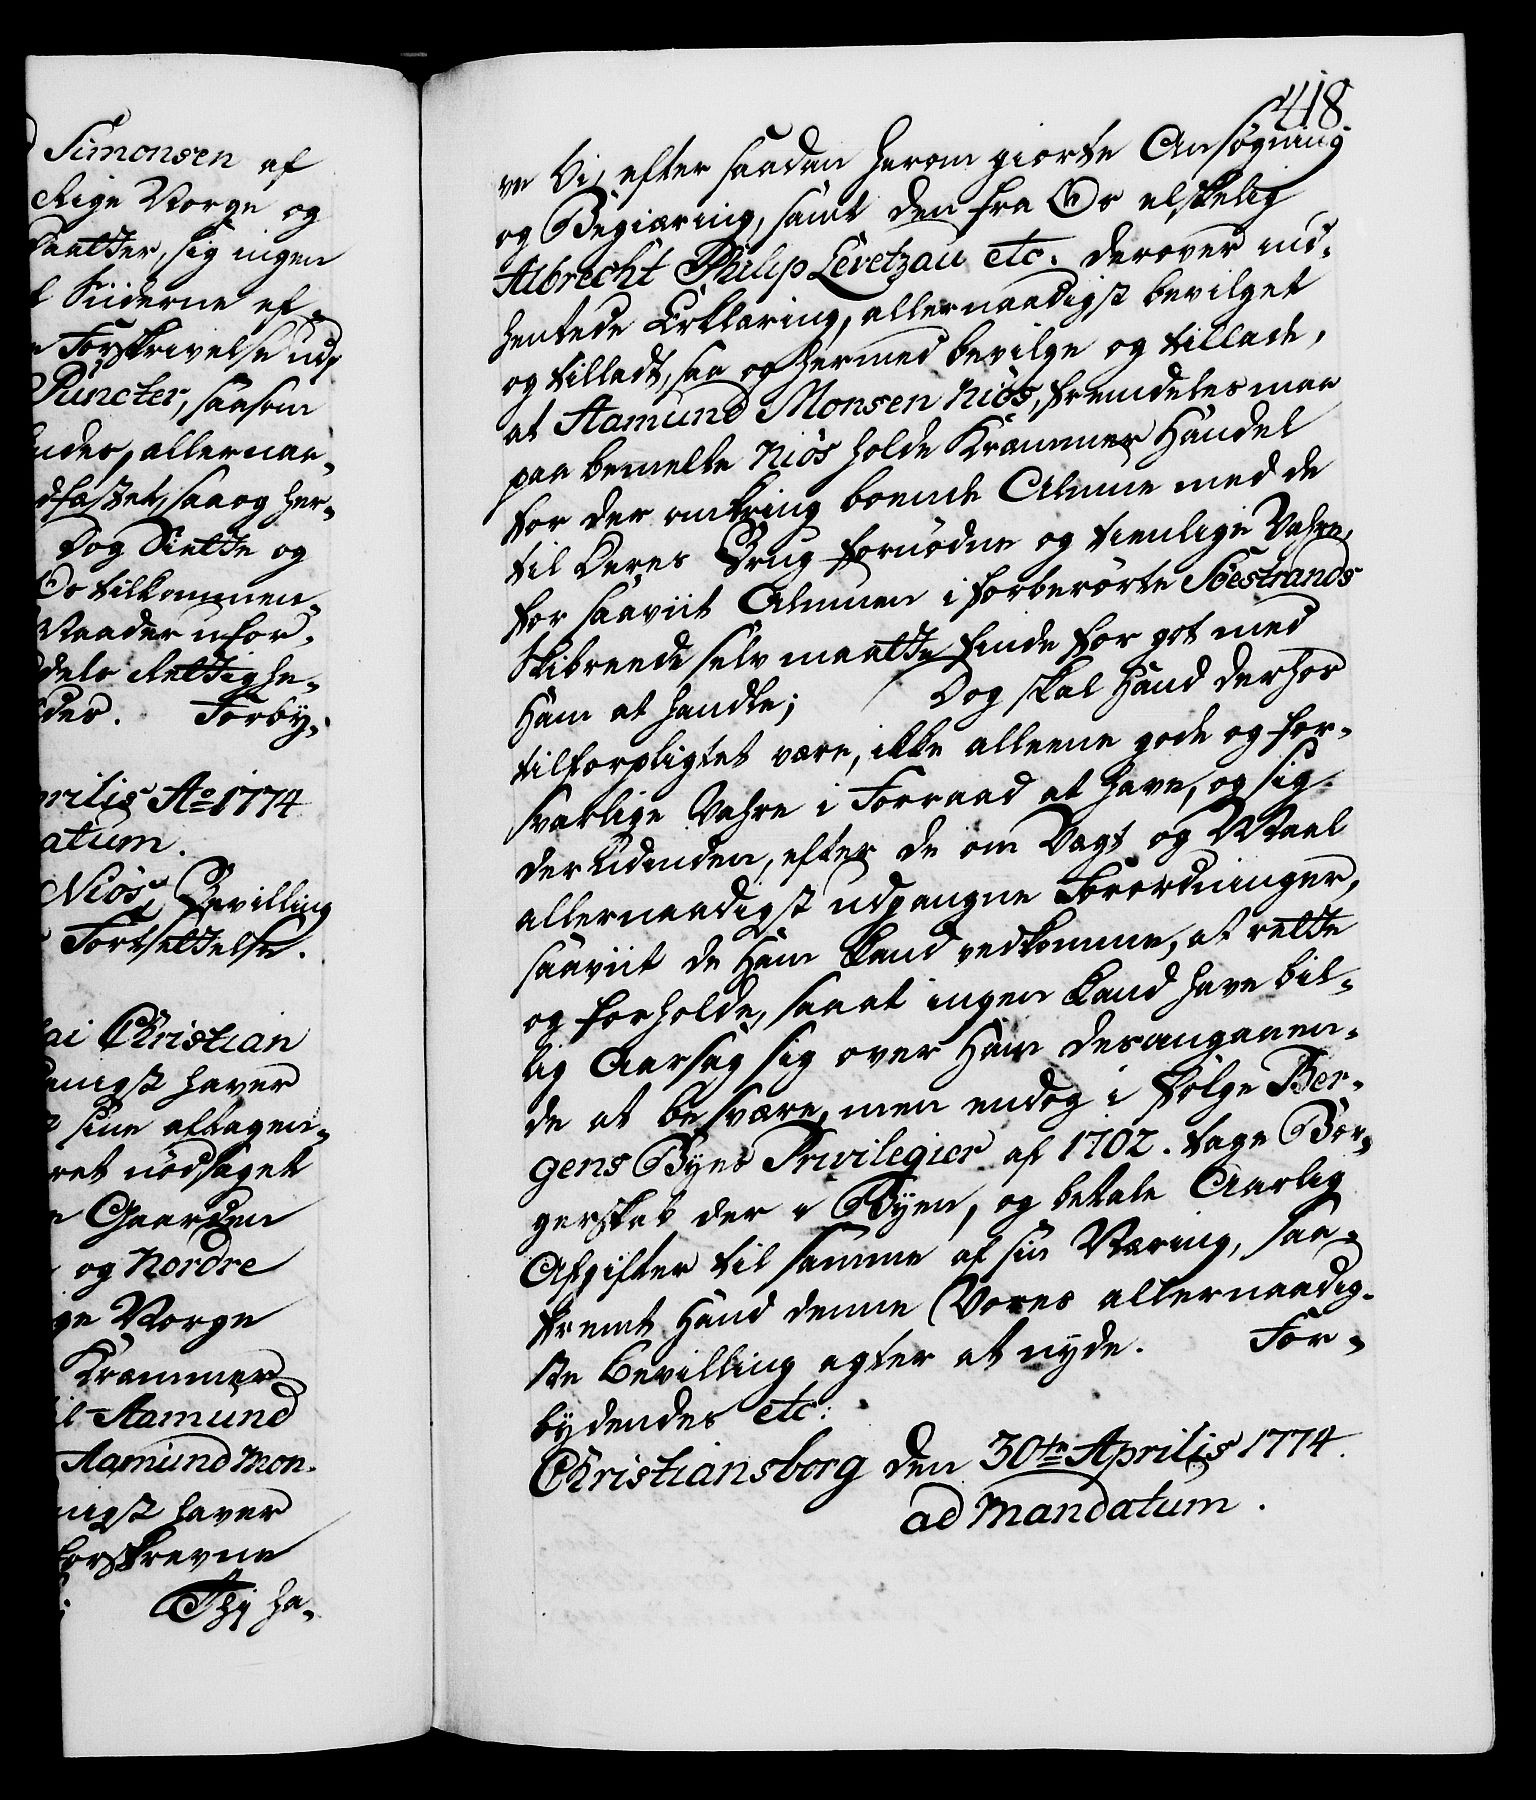 Simonsen af
Rige Norge og
saatter, sig ingen
Siiderne ef-
Forskrivelse udj
Puncter, saasom
ndes, allernaa-
dfæstet, saa og her-
Dog Siette og
Os tilkommen-
Naader ufor-
dels Rettighe-
des. Forbÿ-
prilis Ao 1774
atum.
Niös, Bevilling
Fortsettelse.
Christian
danigst haver
sine aftagen-
ret nödsaget
Gaarden
og Nordre
ge Norge
Kræmmer
Aamund
Aamund Mon-
nigst haver
forskrevne
Thj ha-
418.
ve Vi, efter saadan herom giorte Ansøgning
og Begiæring, samt den fra Os elskelig
Albrecht Philip Levetzau etc. derover ind-
hentede Erklæring, allernaadigst bevilget
og tilladt, saa og hermed bevilge og tillade,
at Aamund Monsen Niös, fremdeles maa
paa bemelte Niös holde Kræmmer Handel
for der omkring boende Almue med de
til deres Brug fornødne og tienlige Vahre,
for saaviit Almuen i forberørte Söestrands
Skibreede selv maatte finde for got med
Ham at handle; Dog skal Hand derhos
tilforpligtet være, ikke alleene gode og for-
svarlige Vahre i Forraad at have, og sig
der Udinden, efter de om Vægt og Maal
allernaadigst udgangne Forordninger,
saaviit de Ham kand vedkomme, at rette
og forholde, saa at ingen kand have bil-
lig Aarsag sig over Ham desangaaen-
de at besvære, men endog i følge Ber-
gens Byes Privilegier af 1702. tage Bor-
gerskab der i Byen, og betale Aarlig
Afgifter til samme af sin Næring, saa-
fremt Hand denne Vores allernaadig-
ste Bevilling agter at nyde. For-
bydendes etc:
Christiansborg den 30te Aprilis 1774.
ad Mandatum.